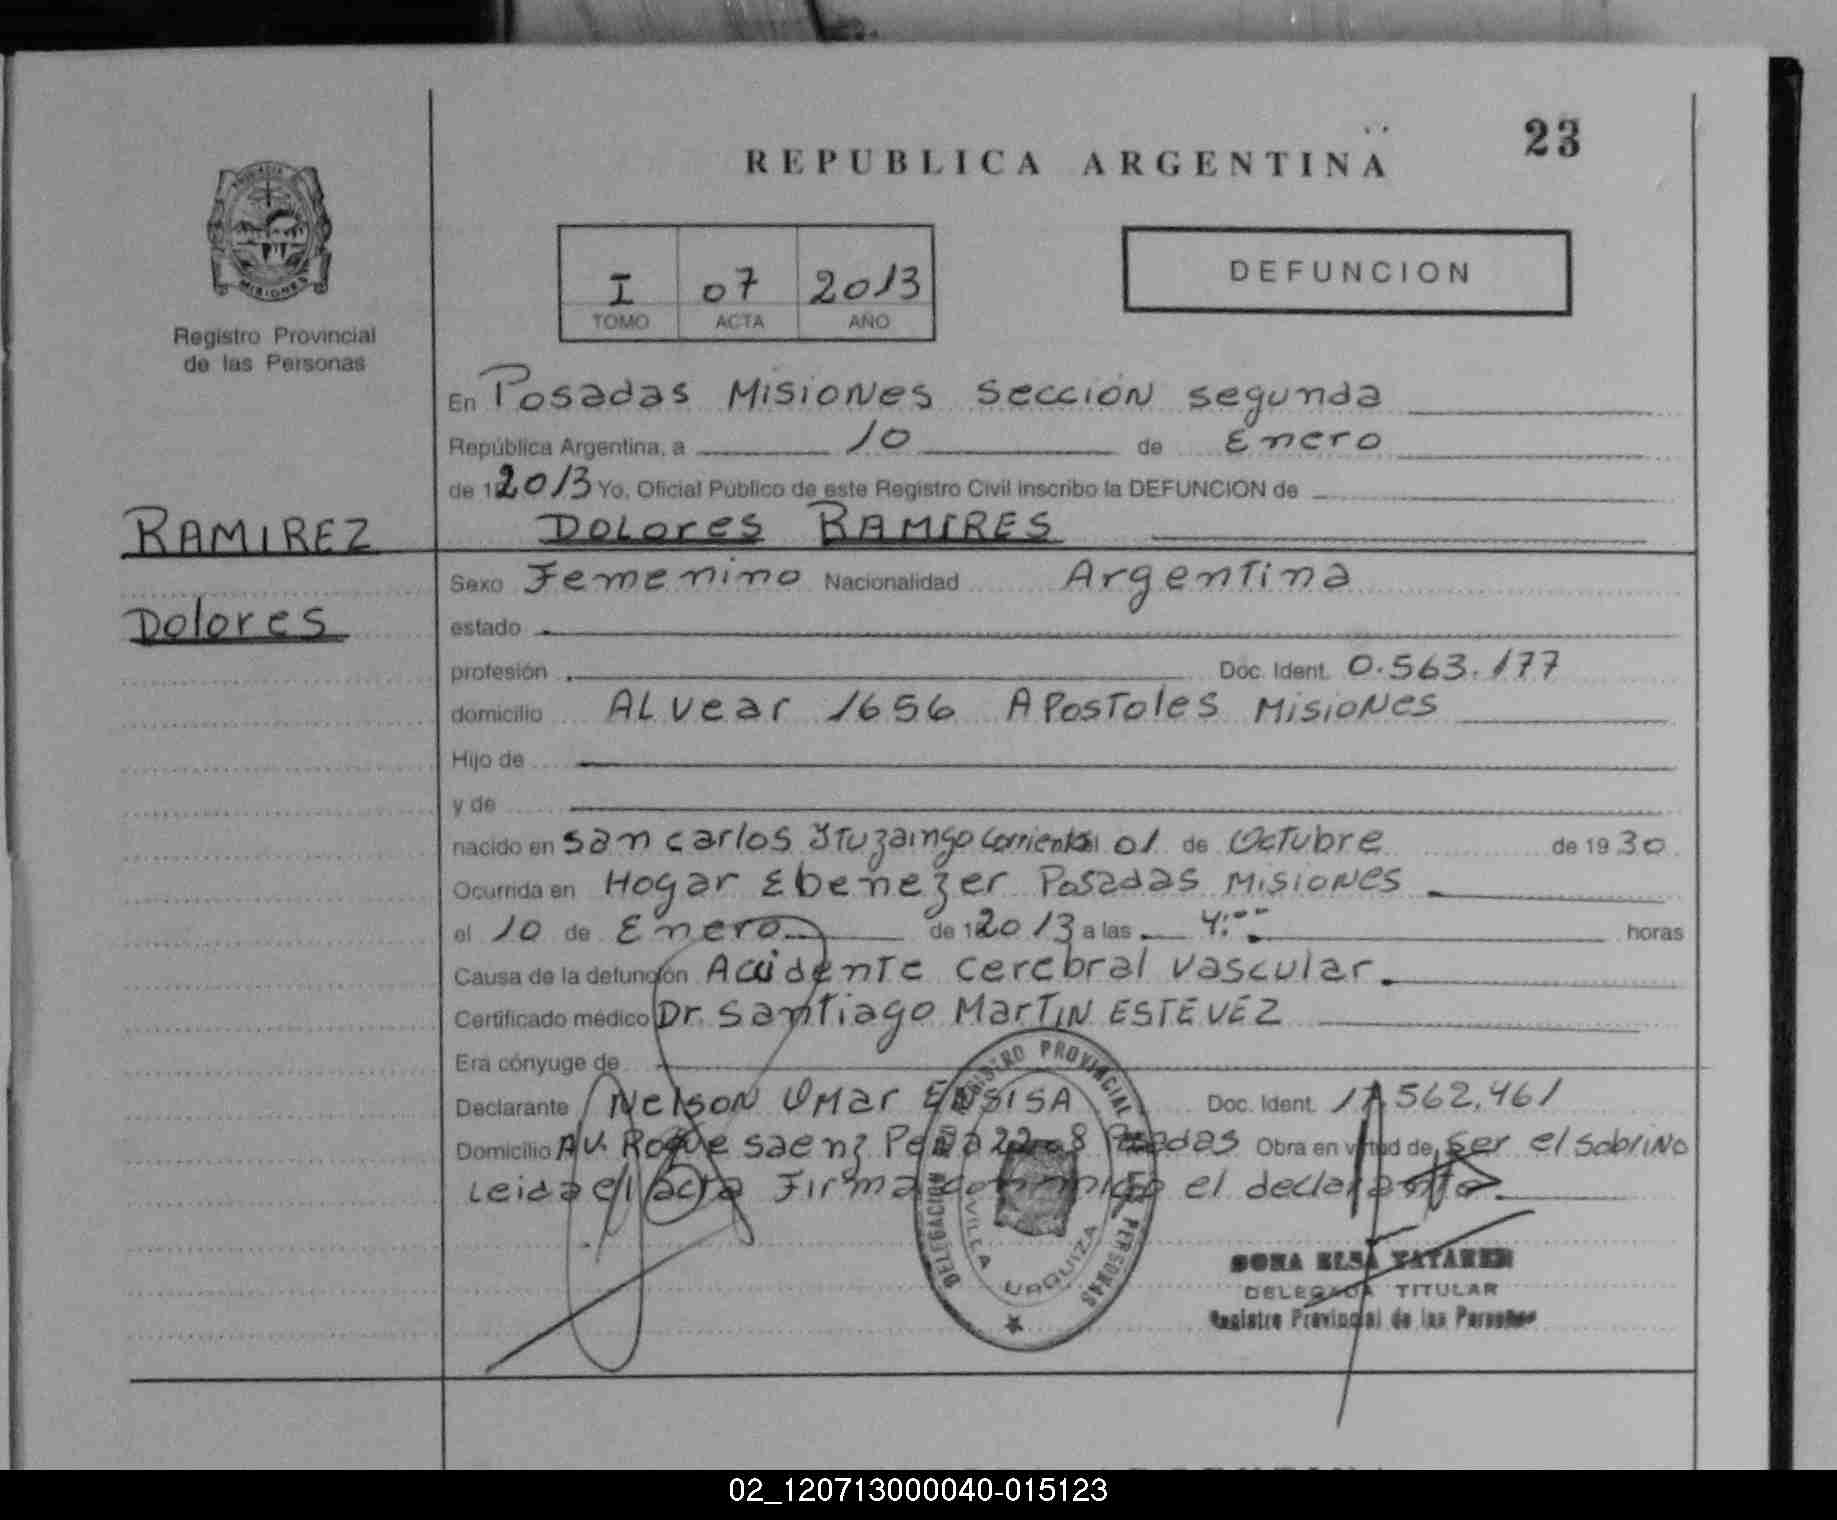 23
REPUBLICA ARGENTINA
MISIONES
Registro Provincial
de las Personas
I 07 2013
TOMO ACTA AÑO
DEFUNCION
En Posadas Misiones Sección segunda
República Argentina, a 10 de Enero
de 2013 Yo, Oficial Público de este Registro Civil inscribo la DEFUNCION de
RAMIREZ
Dolores
Dolores RAMIRES
Sexo Femenino Nacionalidad Argentina
estado
profesión Doc. Ident. 0.563.177
domicilio ALvear 1656 APostoles Misiones
Hijo de
y de
nacido en San carlos Ituzaingo Corrientes el 01 de Octubre de 1930
Ocurrida en Hogar Ebenezer Posadas Misiones
el 10 de Enero de 2013 a las 4:00 horas
Causa de la defunción Accidente cerebral vascular.
Certificado médico Dr. Santiago Martin ESTEVEZ
Era cónyuge de
Declarante Nelson Omar Doc. Ident. 562.461
Domicilio AV. Roque saenz Peña 2208 Posadas Obra en virtud de Ser el sobrino
Leida el acta Firma conmigo el declarante.
DELEGACION REGISTRO PROVINCIAL PERSONAS
VILLA URQUIZA
ELSA
DELEGADA TITULAR
Registro Provincial de las Personas
02_120713000040-015123